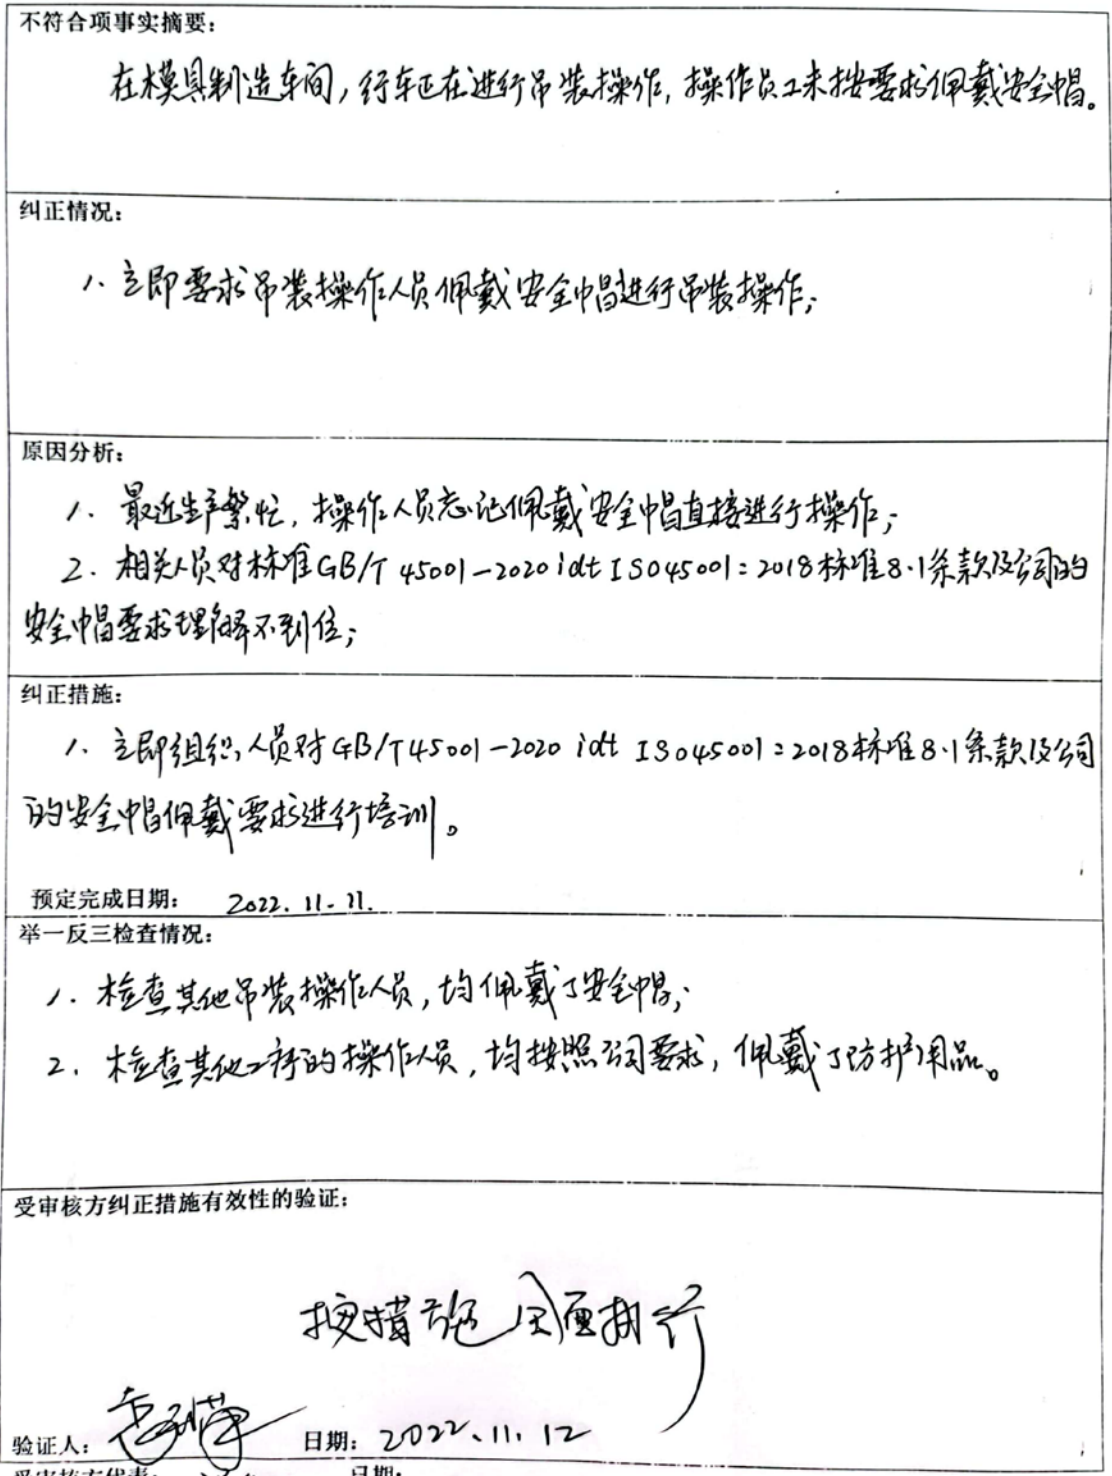 不符合项事实摘要：
在模具制造车间，行车正在进行吊装操作，操作员工未按要求佩戴安全帽。
纠正情况：
1. 立即要求吊装操作人员佩戴安全帽进行吊装操作；
原因分析：
1. 最近生产繁忙，操作人员忘记佩戴安全帽直接进行操作；
2. 相关人员对标准GB/T 45001-2020 idt ISO45001：2018标准8.1条款及公司的
安全帽要求理解不到位；
纠正措施：
1. 立即组织人员对GB/T45001-2020 idt ISO45001：2018标准8.1条款及公司
的安全帽佩戴要求进行培训。
预定完成日期： 2022.11.11.
举一反三检查情况：
1. 检查其他吊装操作人员，均佩戴了安全帽；
2. 检查其他工序的操作人员，均按照公司要求，佩戴了防护用品。
受审核方纠正措施有效性的验证：
按措施 执行
验证人： 日期： 2022.11.12
受审核方代表： 日期：